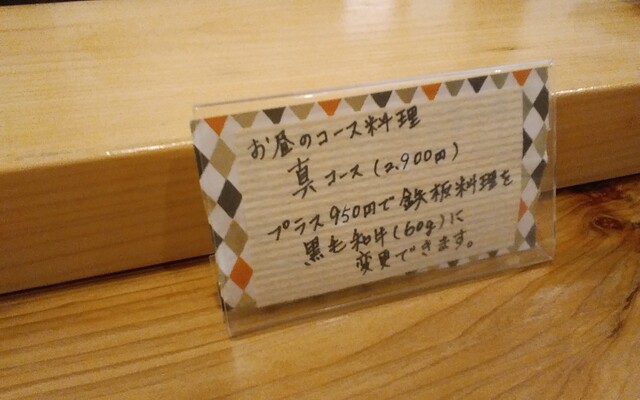 お昼のコース料理
真コース(2.900円)
プラス950円で鉄板料理を
黒毛和牛(60g)に
変更できます。